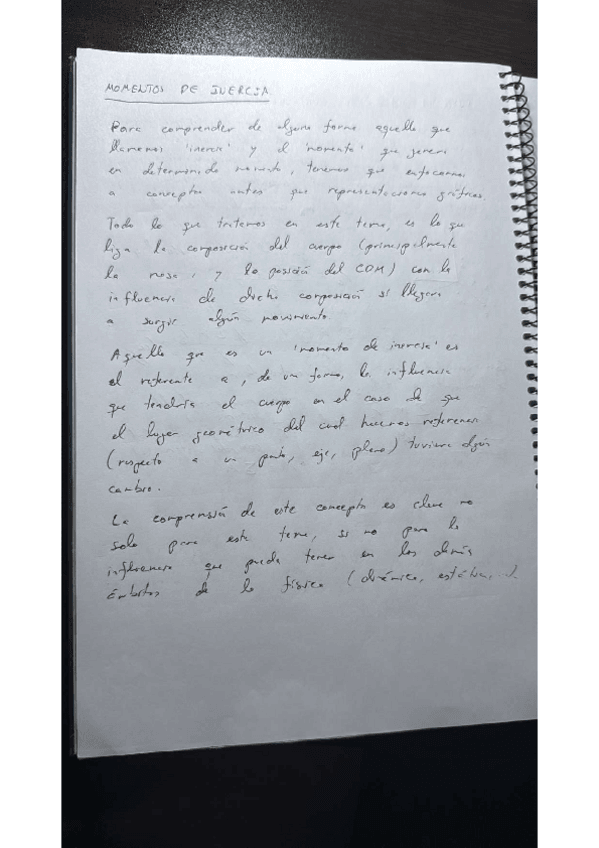 MOMENTOS DE INERCIA
Para comprender de alguna forma aquello que
llamamos 'inercia' y el 'momento' que genera
en determinado momento, tenemos que enfocarnos
a conceptos antes que representaciones gráficas.
Todo lo que tratemos en este tema, es lo que
liga la composición del cuerpo (principalmente
la masa, y la posición del COM) con la
influencia de dicha composición si llegara
a surgir algún movimiento.
Aquello que es un 'momento de inercia' es
el referente a, de un forma, la influencia
que tendría el cuerpo en el caso de que
el lugar geométrico del cual hacemos referencia
(respecto a un punto, eje, plano) tuviera algún
cambio.
La comprensión de este concepto es clave no
solo para este tema, si no para la
influencia que pueda tener en los demás
ámbitos de la física (dinámica, estática, ...).